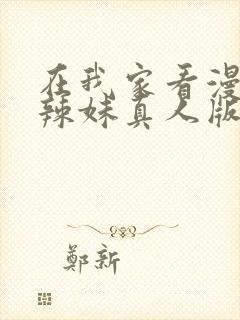 在我家看漫
辣妹真人版
鄭新